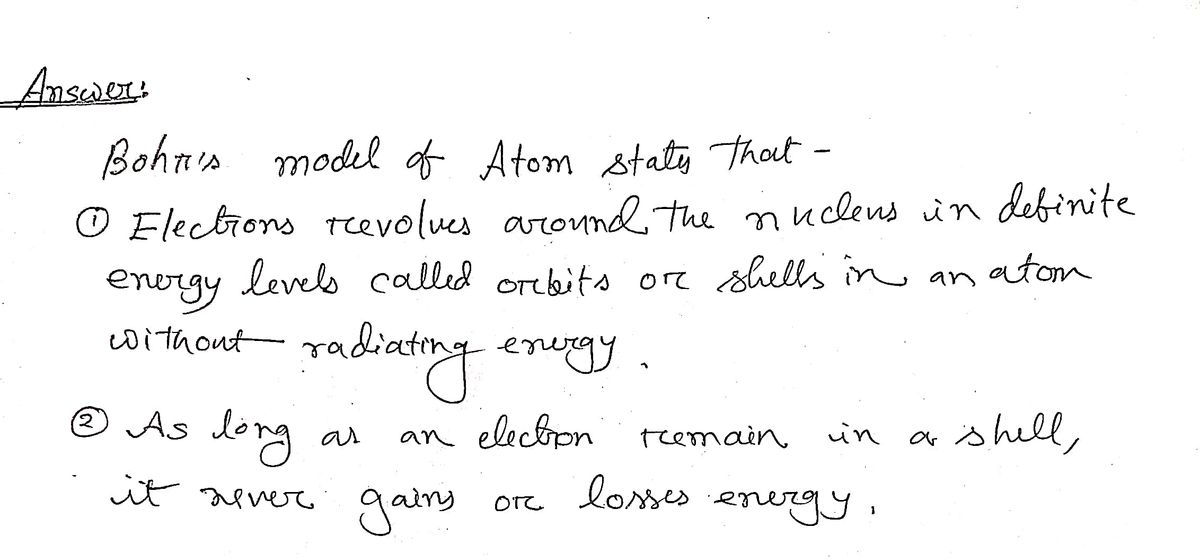 Answer:
Bohr's model of Atom states that -
① Electrons revolves around the nucleus in definite
energy levels called orbits or shells in an atom
without radiating energy.
② As long as an electron remain in a shell,
it never gains or losses energy.